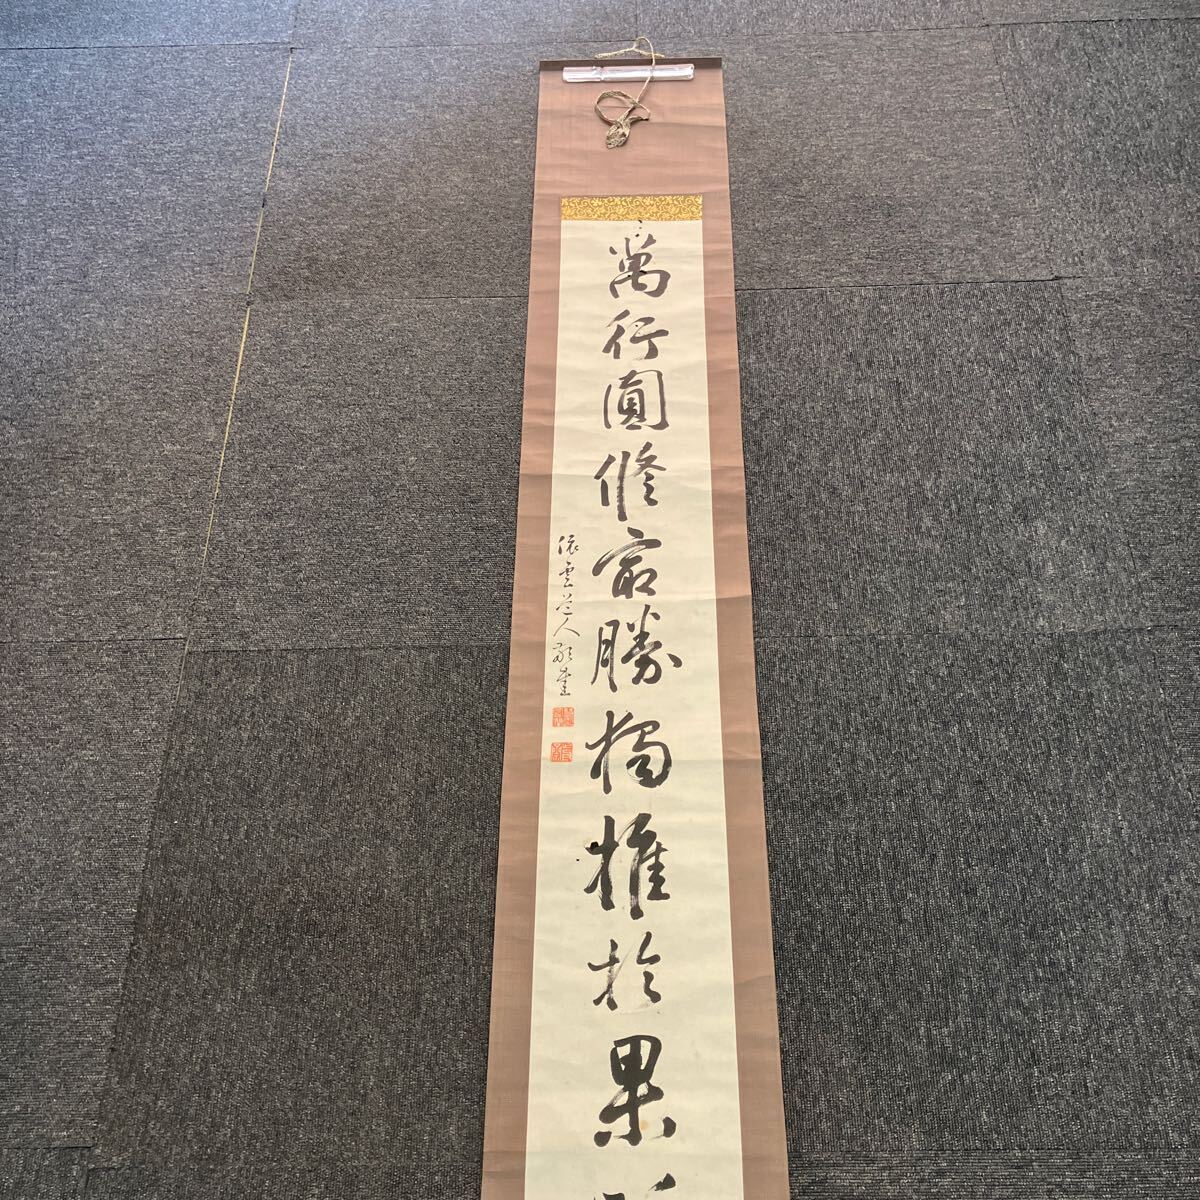 萬行圓修最勝獨推於果
依雲老人敬書